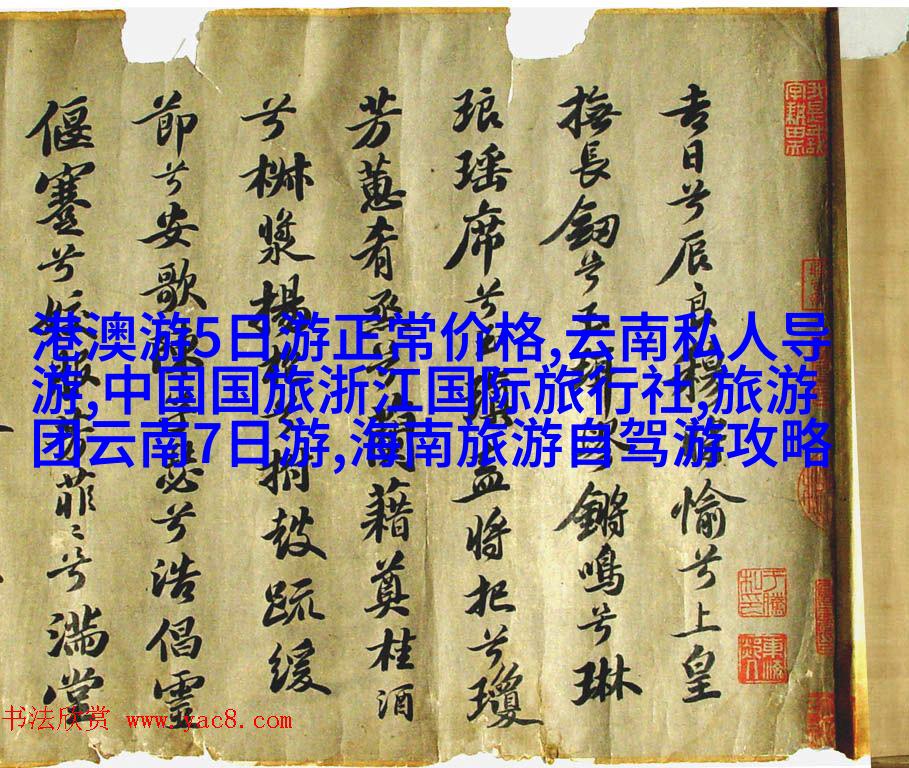 港澳游5日游正常价格,云南私人导
游,中国国旅浙江国际旅行社,旅游
团云南7日游,海南旅游自驾游攻略
吉日兮辰良穆愉兮上皇
撫長劔兮玉鏘鳴兮琳
琅瑶席兮瑱盍将把兮瓊
芳蕙肴烝兮蘭藉奠桂酒
兮椒漿揚兮拊鼓疏緩
節兮安歌瑟兮浩倡靈
偃蹇兮芳菲〻兮滿堂
书法欣赏 www.yac8.com